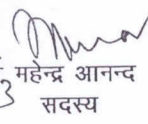 महेन्द्र आनन्द
3
सदस्य